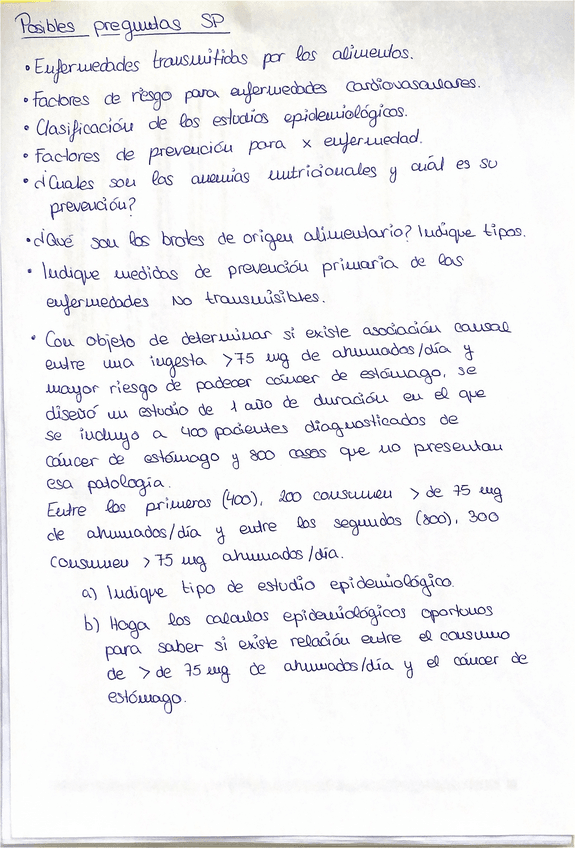 Posibles preguntas SP
• Enfermedades transmitidas por los alimentos.
• Factores de riesgo para enfermedades cardiovasculares.
• Clasificación de los estudios epidemiológicos.
• Factores de prevención para x enfermedad.
• ¿Cuales son las anemias nutricionales y cuál es su
prevención?
• ¿Qué son los brotes de origen alimentario? Indique tipos.
• Indique medidas de prevención primaria de las
enfermedades No transmisibles.
• Con objeto de determinar si existe asociación causal
entre una ingesta >75 mg de ahumados/día y
mayor riesgo de padecer cáncer de estómago, se
diseñó un estudio de 1 año de duración en el que
se incluyo a 400 pacientes diagnosticados de
cáncer de estómago y 800 casos que no presentan
esa patología.
Entre los primeros (400), 200 consumen > de 75 mg
de ahumados/día y entre los segundos (800), 300
consumen >75 mg ahumados/día.
a) Indique tipo de estudio epidemiológico.
b) Haga los calculos epidemiológicos oportunos
para saber si existe relación entre el consumo
de > de 75 mg de ahumados/día y el cáncer de
estómago.